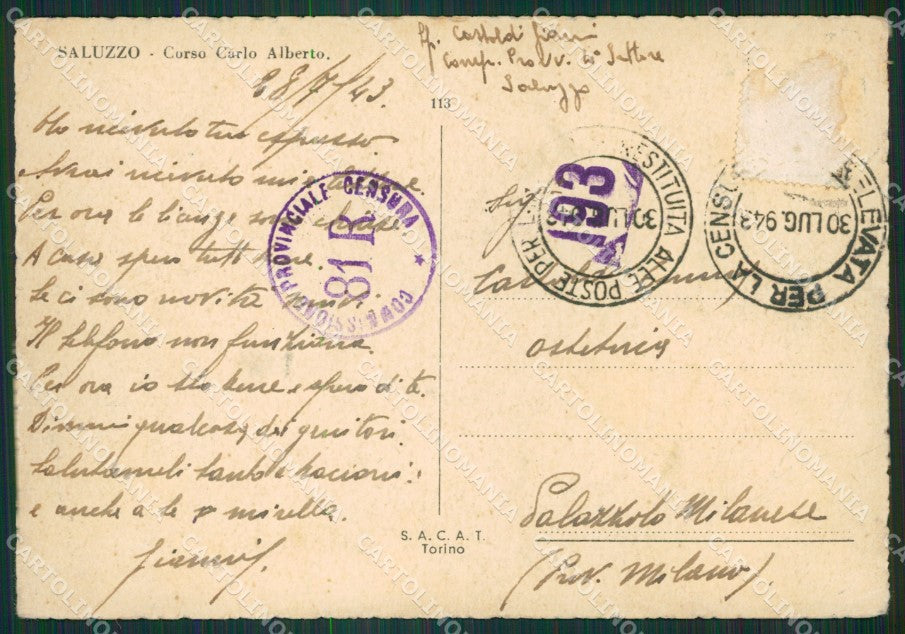 SALUZZO - Corso Carlo Alberto.
28/7/43.
Ho ricevuto tuo espresso
ricevuto
Per ora le
A casa spero tutti bene.
Se ci sono novità
Il telefono non funziona.
Per ora io sto bene e spero di te.
Dimmi qualcosa dei genitori.
Salutameli tanto e bacioni
e anche a te e mirella.
113
Sp.
Comp. Provv. 4° Settore
Saluzzo
COMMISSIONE PROVINCIALE CENSURA
81 R
RESTITUITA ALLE POSTE PER
30 LUG 943
193
PRELEVATA PER LA CENSURA
30 LUG 943
Sig
ostetrica
Palazzolo Milanese
(Prov. Milano).
S. A. C. A. T.
Torino
CARTOLINOMANIA